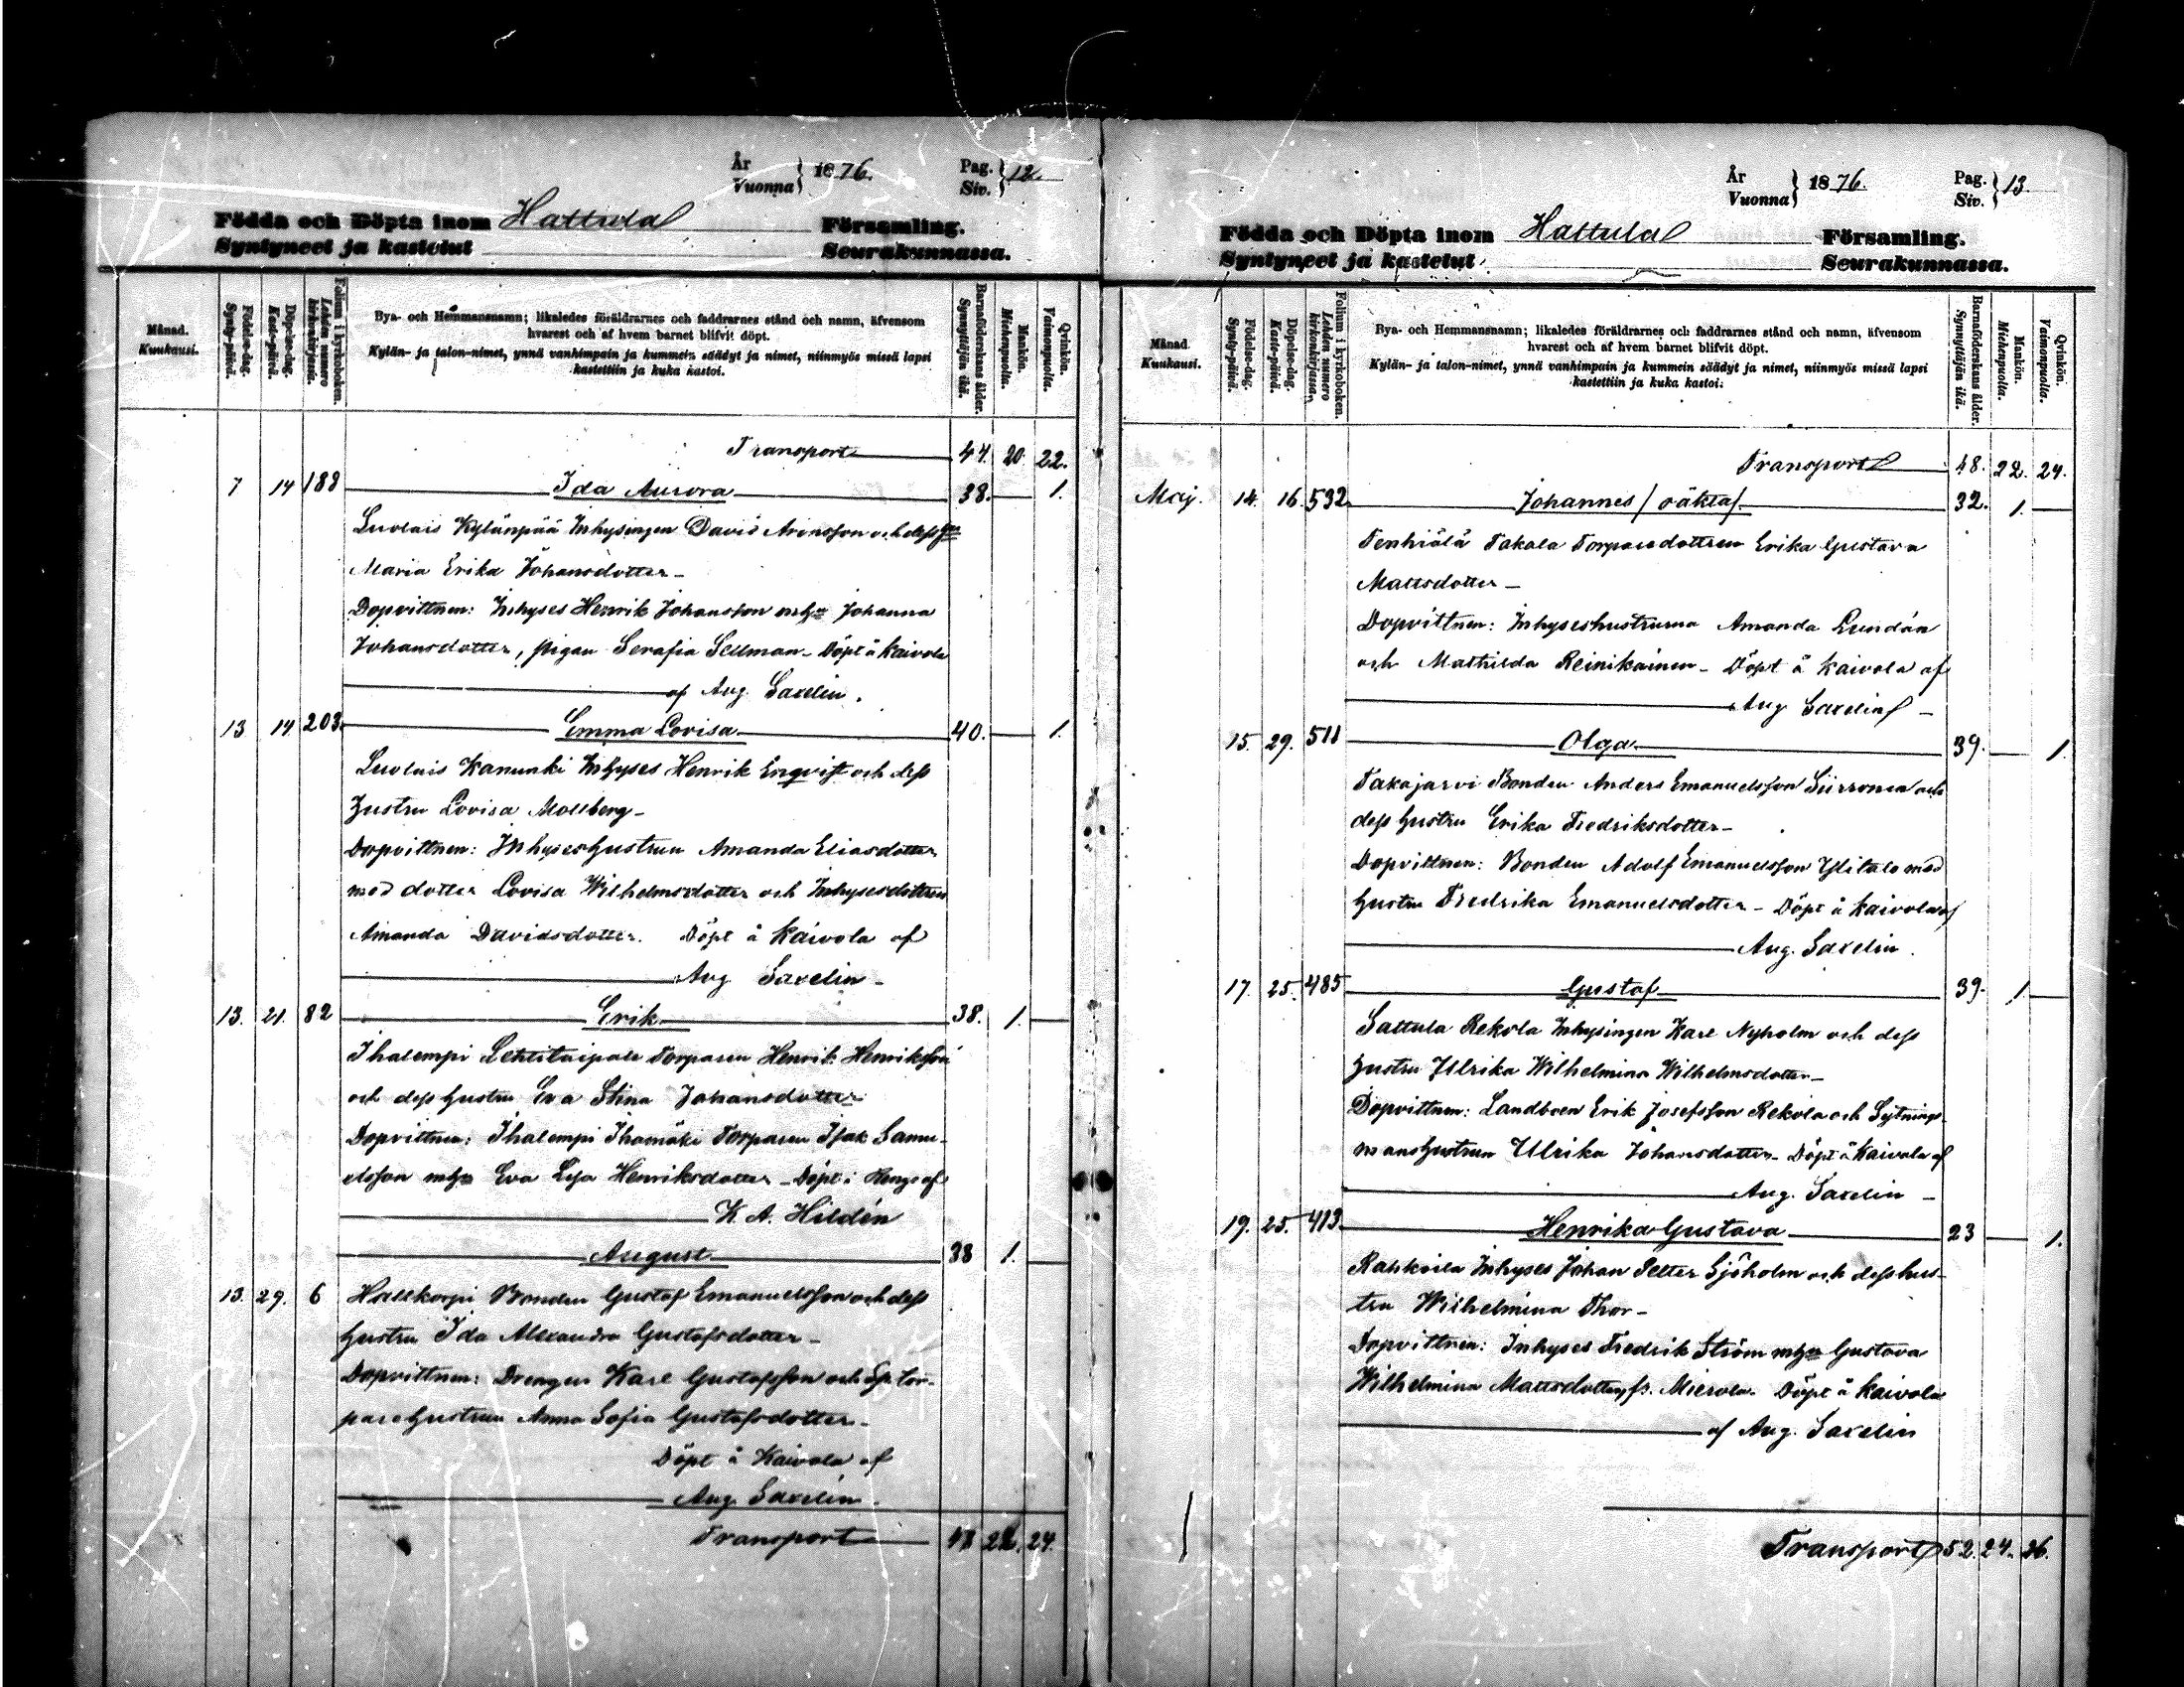 År
Vuonna } 1876. Pag.
Siv. } 12.
Födda och Döpta inom Hattula Församling.
Syntyneet ja kastetut Seurakunnassa.
Månad.
Kuukausi.
Födelse-dag.
Synty-päivä.
Döpelse-dag.
Kaste-päivä.
Folium i kyrkoboken.
Lehden numero
kirkonkirjassa.
Bya- och Hemmansnamn; likaledes föräldrarnes och faddrarnes stånd och namn, äfvensom
hvarest och af hvem barnet blifvit döpt.
Kylän- ja talon-nimet, ynnä vanhimpain ja kummein säädyt ja nimet, niinmyös missä lapsi
kastettiin ja kuka kastoi.
Barnaföderskans ålder.
Synnyttäjän ikä.
Mankön.
Miehenpuolta.
Qvinkön.
Vaimonpuolta.
Transport 20. 22.
7 14 188 Ida Aurora 38. 1.
Luolais Kylänpää Inhysingen David Aronsson och dess
Maria Erika Johansdotter
Dopvittnen: Inhyses Henrik Johansson Johanna
Johansdotter, pigan Serafia Sellman - Döpt å Kaivola
af Aug. Saxelin.
13 14 203. Emma Lovisa 40. 1.
Luolais Kanunki Inhyses Henrik Enqvist och dess
hustru Lovisa Mollberg -
Dopvittnen: Inhyseshustrun Amanda Eliasdotter
med dotter Lovisa Wilhelmsdotter och Inhysesdottren
Amanda Davidsdotter. Döpt å Kaivola af
Aug Saxelin -
13. 21. 82 Erik 38. 1.
Ihalempi Lehtitaipale Torparen Henrik Henriksson
och dess hustru Eva Stina Johansdotter
Dopvittnen: Ihalempi Ihamäki Torparen Isak Samu-
elsson Eva Lisa Henriksdotter - Döpt i Rengo af
K. A. Hildén
August 38 1.
13. 29. 6 Hallkorpi Bonden Gustaf Emanuelsson och dess
hustru Ida Alexandra Gustafsdotter -
Dopvittnen: Drengen Karl Gustafsson och Sp. tor-
parehustrun Anna Sofia Gustafsdotter -
Döpt å Kaivola af
Aug. Saxelin.
Transport 22. 24.
År
Vuonna } 1876. Pag.
Siv. } 13.
Födda och Döpta inom Hattula Församling.
Syntyneet ja kastetut Seurakunnassa.
Månad.
Kuukausi.
Födelse-dag.
Synty-päivä.
Döpelse-dag.
Kaste-päivä.
Folium i kyrkoboken.
Lehden numero
kirkonkirjassa.
Bya- och Hemmansnamn; likaledes föräldrarnes och faddrarnes stånd och namn, äfvensom
hvarest och af hvem barnet blifvit döpt.
Kylän- ja talon-nimet, ynnä vanhimpain ja kummein säädyt ja nimet, niinmyös missä lapsi
kastettiin ja kuka kastoi.
Barnaföderskans ålder.
Synnyttäjän ikä.
Mankön.
Miehenpuolta.
Qvinkön.
Vaimonpuolta.
Transport 48. 22. 24.
Maj. 14. 16. 532. Johannes / oäkta / 32. 1.
Tenhiälä Takala Torparedottren Erika Gustava
Mattsdotter -
Dopvittnen: Inhyseshustrurna Amanda Lundán
och Mathilda Reinikainen - Döpt å Kaivola af
Aug Saxelin -
15. 29. 511 Olga 39. 1.
Takajärvi Bonden Anders Emanuelsson och
dess hustru Erika Fredriksdotter -
Dopvittnen: Bonden Adolf Emanuelsson Ylitalo med
hustru Fredrika Emanuelsdotter - Döpt å Kaivola af
Aug. Saxelin.
17. 25. 485 Gustaf 39. 1.
Sattula Rekola Inhysingen Karl Nyholm och dess
hustru Ulrika Wilhelmina Wilhelmsdotter -
Dopvittnen: Landboen Erik Josefsson Rekola och Sytnings-
manshustrun Ulrika Johansdotter - Döpt å Kaivola af
Aug. Saxelin -
19. 25. 413. Henrika Gustava 23 1.
Rahkoila Inhyses Johan Petter Sjöholm och dess hus-
tru Wilhelmina Thor -
Dopvittnen: Inhyses Fredrik Ström Gustava
Wilhelmina Mattsdotter, fr. Mierola. Döpt å Kaivola
af Aug. Saxelin
Transport 52. 24. 26.